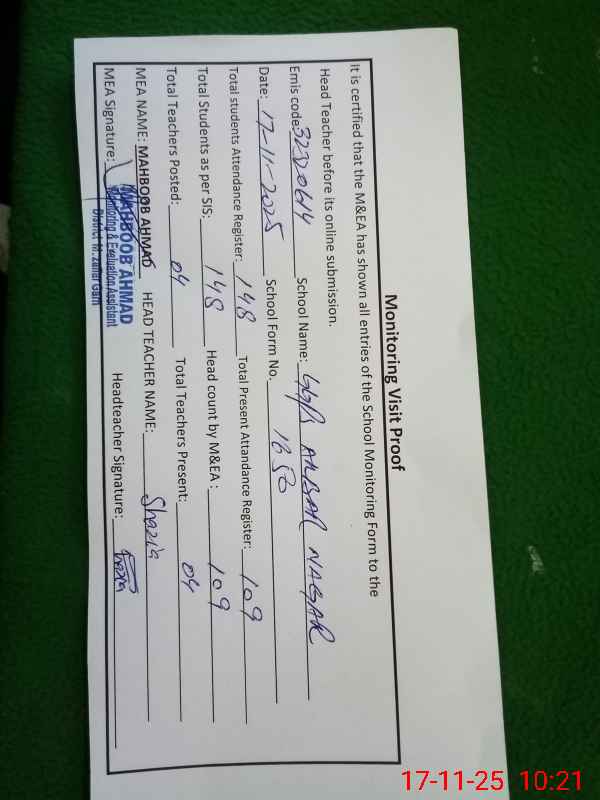 Monitoring Visit Proof
It is certified that the M&EA has shown all entries of the School Monitoring Form to the
Head Teacher before its online submission.
Emis code: 32320614 School Name: AKBAR NAGAR
Date: 17-11-2025 School Form No. 1650
Total students Attendance Register: 148 Total Present Attandance Register: 109
Total Students as per SIS: 148 Head count by M&EA : 109
Total Teachers Posted: 04 Total Teachers Present: 04
MEA NAME: MAHBOOB AHMAD HEAD TEACHER NAME: Shazia
MEA Signature: Headteacher Signature: Shazia
MAHBOOB AHMAD
Monitoring & Evaluation Assistant
District M.zaffar Garh
17-11-25 10:21